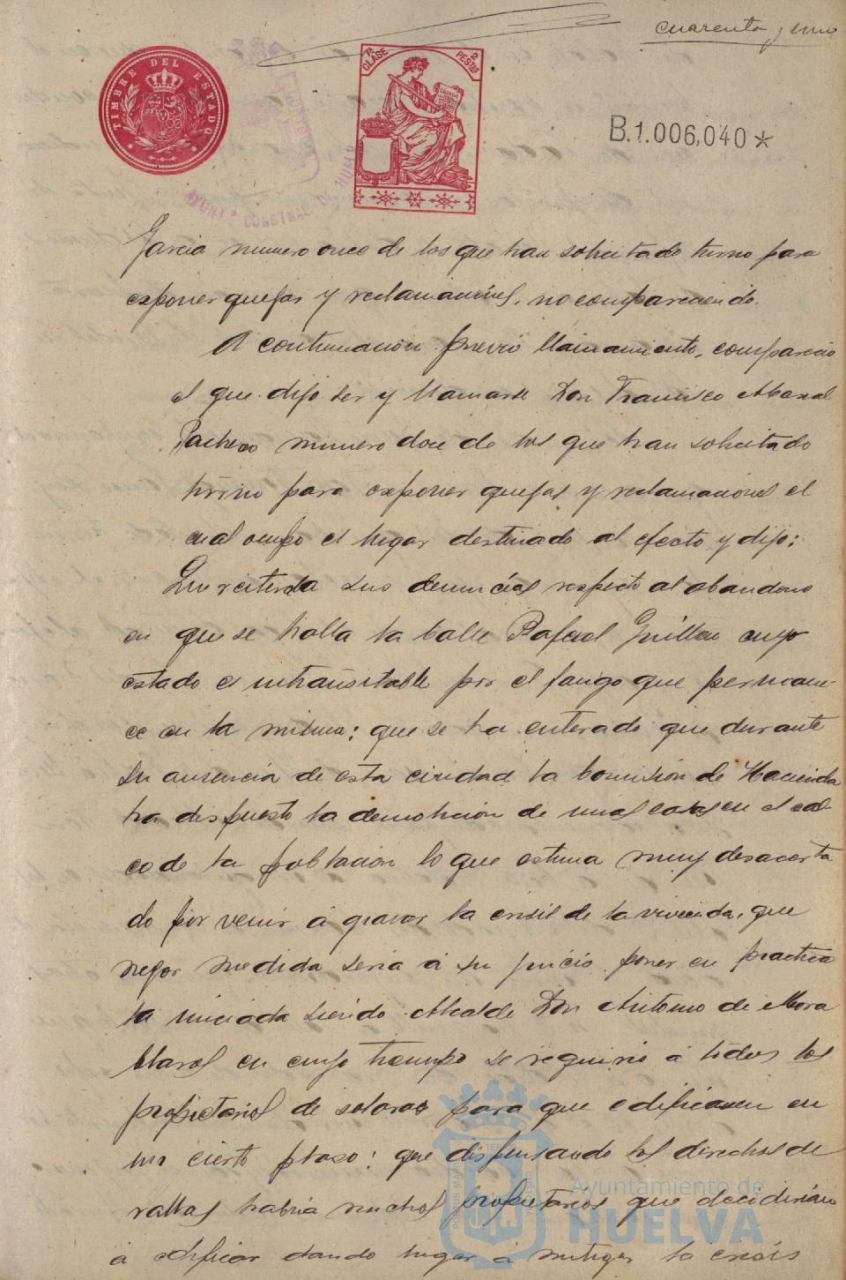 cuarenta y uno
TIMBRE DEL ESTADO
7ª CLASE 2 PESTAS
B.1.006,040*
AYUNTº CONSTNAL DE HUELVA
Garcia numero once de los que han solicitado turno para
esponer quejas y reclamaciones, no compareciendo.
A continuación previo llamamiento, compareció
el que dijo ser y llamarse Don Francisco
Pacheco numero doce de los que han solicitado
turno para esponer quejas y reclamaciones el
cual ocupo el lugar destinado al efecto y dijo:
Que reitera sus denuncias respecto al abandono
en que se halla la Calle Rafael Guillen cuyo
estado es intransitable por el fango que permane-
ce en la misma; que se ha enterado que durante
su ausencia de esta ciudad la Comisión de Hacienda
ha dispuesto la demolición de unas casas en el cas-
co de la población lo que estima muy desacerta
do por venir á gravar la crisis de la vivienda, que
mejor medida seria á su juicio poner en practica
la iniciada siendo Alcalde Don Antonio de Mora
Claros en cuyo tiempo se requirio á todos los
propietarios de solares para que edificasen en
un cierto plazo; que dispensando los derechos de
vallas habria muchos propietarios que decidirian
á edificar dando lugar a mitigar la crisis
Ayuntamiento de
HUELVA